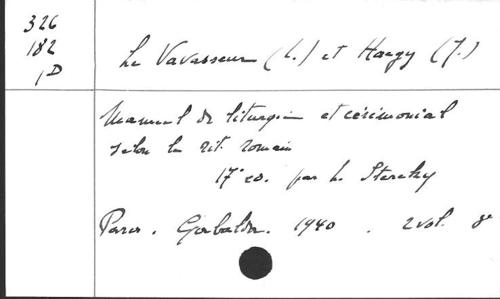 326
182
1D
Le Vavasseur (L.) et Haegy (J.)
Manuel de liturgie et cérémonial
selon le rit romain
17e éd. par L. Stercky
Paris. Gabalda. 1940. 2 vol. 8°